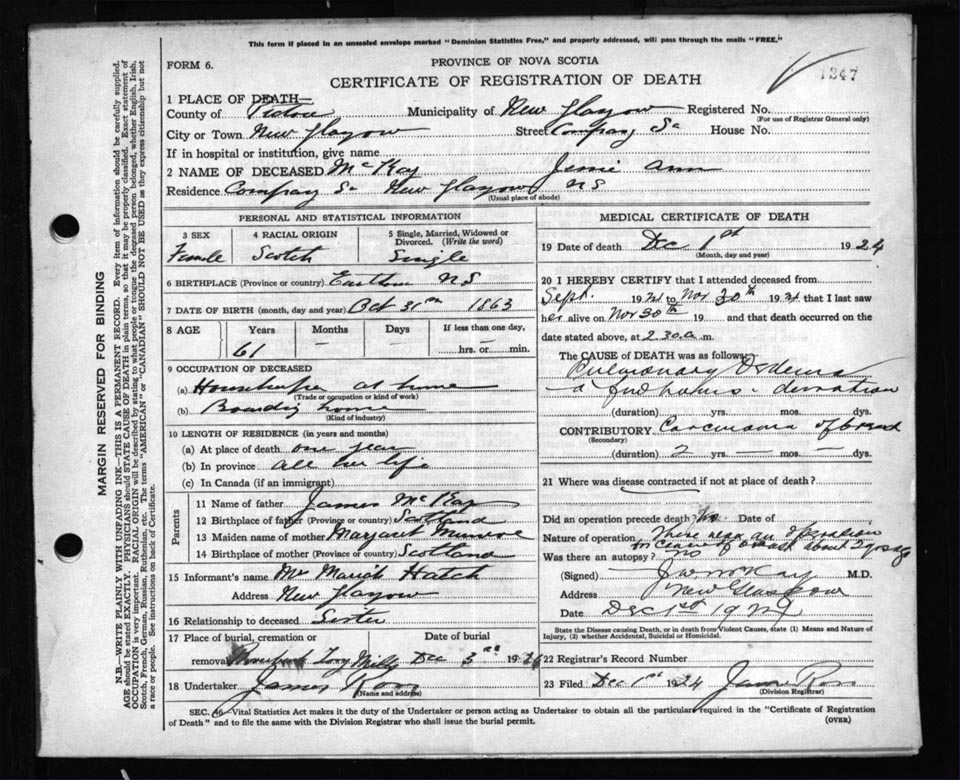 This form if placed in an unsealed envelope marked "Dominion Statistics Free," and properly addressed, will pass through the mails "FREE."
FORM 6.
PROVINCE OF NOVA SCOTIA
CERTIFICATE OF REGISTRATION OF DEATH
1347
1 PLACE OF DEATH
County of Pictou Municipality of New Glasgow Registered No.
(For use of Registrar General only)
City or Town New Glasgow Street Company St House No.
If in hospital or institution, give name
2 NAME OF DECEASED McKay Jessie Ann
Residence Company St New Glasgow NS
(Usual place of abode)
PERSONAL AND STATISTICAL INFORMATION
3 SEX 4 RACIAL ORIGIN 5 Single, Married, Widowed or Divorced. (Write the word)
Female Scotch Single
6 BIRTHPLACE (Province or country) Earltown NS
7 DATE OF BIRTH (month, day and year) Oct 31st 1863
8 AGE Years Months Days If less than one day,
61 — hrs. or — min.
9 OCCUPATION OF DECEASED
(a) at home
(Trade or occupation or kind of work)
(b) Boarding home
(Kind of industry)
10 LENGTH OF RESIDENCE (in years and months)
(a) At place of death one year
(b) In province all her life
(c) In Canada (if an immigrant)
Parents
11 Name of father James McKay
12 Birthplace of father (Province or country) Scotland
13 Maiden name of mother Margaret Munroe
14 Birthplace of mother (Province or country) Scotland
15 Informant's name Hatch
Address New Glasgow
16 Relationship to deceased Sister
17 Place of burial, cremation or removal Date of burial
Mills Dec 3rd 1924
18 Undertaker James Ross
(Name and address)
MEDICAL CERTIFICATE OF DEATH
19 Date of death Dec 1st 1924
(Month, day and year)
20 I HEREBY CERTIFY that I attended deceased from
Sept. 1924 to Nov 30th 1924 that I last saw
her alive on Nov 30th 19 and that death occurred on the
date stated above, at 2.30 a.m.
The CAUSE OF DEATH was as follows:
Pulmonary Oedema
a few hours duration
(duration) yrs. mos. dys.
CONTRIBUTORY Carcinoma of breast
(Secondary)
(duration) 2 yrs. — mos. — dys.
21 Where was disease contracted if not at place of death?
Did an operation precede death? Date of
Nature of operation There was an operation
for Cancer of breast about 2 yrs ago
Was there an autopsy? No
(Signed) McKay M.D.
Address New Glasgow
Date Dec 1st 1924
State the Disease causing Death, or in death from Violent Causes, state (1) Means and Nature of Injury, (2) whether Accidental, Suicidal or Homicidal.
22 Registrar's Record Number
23 Filed Dec 1st 1924 James Ross
(Division Registrar)
SEC. 46—Vital Statistics Act makes it the duty of the Undertaker or person acting as Undertaker to obtain all the particulars required in the "Certificate of Registration
of Death" and to file the same with the Division Registrar who shall issue the burial permit.
(OVER)
MARGIN RESERVED FOR BINDING
N.B.—WRITE PLAINLY WITH UNFADING INK—THIS IS A PERMANENT RECORD. Every item of information should be carefully supplied.
AGE should be stated EXACTLY. PHYSICIANS should STATE CAUSE OF DEATH in plain terms, so that it may be properly classified. Exact statement of
OCCUPATION is very important. RACIAL ORIGIN will be described by stating to what people or tongue the deceased person belonged, whether English, Irish,
Scotch, French, German, Russian, Ruthenian, etc. The terms "AMERICAN" or "CANADIAN" SHOULD NOT BE USED as they express citizenship but not
a race or people. See instructions on back of Certificate.